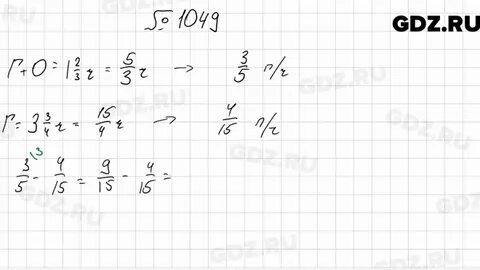 № 1049
GDZ.RU
Г+О = 1 2/3 ч = 5/3 ч → 3/5 п/ч
Г = 3 3/4 ч = 15/4 ч → 4/15 п/ч
3/5 \3 - 4/15 = 9/15 - 4/15 =
GDZ.RU
GDZ.RU
GDZ.RU
GDZ.RU